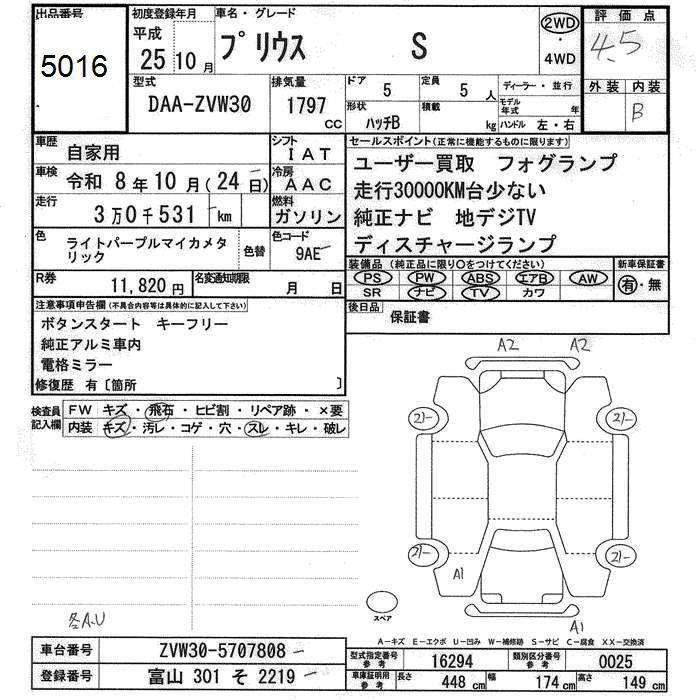 出品番号 初度登録年月 車名・グレード 評価点
5016 平成 25年 10月 プリウス S 2WD・4WD 4.5
型式 排気量 ドア 定員 ディーラー・並行 外装 内装
DAA-ZVW30 1797cc 5 5人 モデル年式 年 B
形状 積載
ハッチB kg ハンドル 左・右
車歴 自家用 シフト IAT セールスポイント(正常に機能するものに限ります)
車検 令和 8年10月(24日) 冷房 AAC ユーザー買取 フォグランプ
走行 3万0千531km 燃料 ガソリン 走行30000KM台少ない
純正ナビ 地デジTV
色 ライトパープルマイカメタリック 色替 色コード 9AE ディスチャージランプ
R券 11,820円 名変通知期限 月 日 装備品(純正品に限り○をつけてください) 新車保証書
PS PW ABS エアB AW 有・無
SR ナビ TV カワ
注意事項申告欄(不具合内容等は具体的に記入して下さい) 後日品 保証書
ボタンスタート キーフリー
純正アルミ車内
電格ミラー
修復歴 有〔箇所 〕
検査員記入欄 FW キズ・飛石・ヒビ割・リペア跡・×要
内装 キズ・汚レ・コゲ・穴・スレ・キレ・破レ
A2 A2
21- 21-
21- 21-
A1
スペア
冬A.U
A1
A-キズ E-エクボ U-凹み W-補修跡 S-サビ C-腐食 XX-交換済
車台番号 ZVW30-5707808 型式指定番号 参考 16294 類別区分番号 参考 0025
登録番号 富山 301 そ 2219 車庫証明用 参考 長さ 448cm 幅 174cm 高さ 149cm